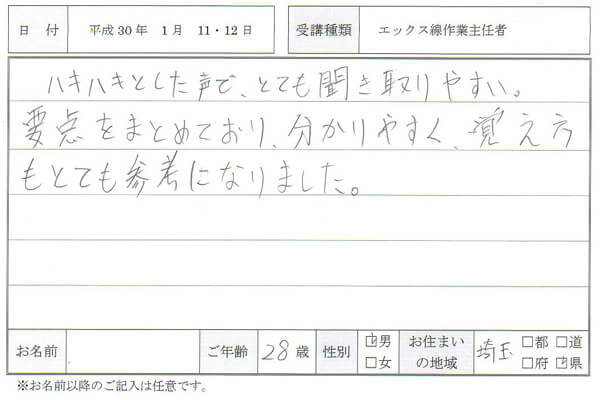 日 付 平成30年 1月 11・12日 受講種類 エックス線作業主任者
ハキハキとした声で、とても聞き取りやすい。
要点をまとめており、分かりやすく、覚え方
もとても参考になりました。
お名前 ご年齢 28歳 性別 ☑男 □女 お住まいの地域 埼玉 □都 □道 □府 ☑県
※お名前以降のご記入は任意です。